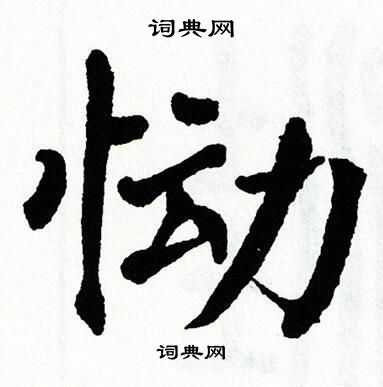 词典网
恸
词典网